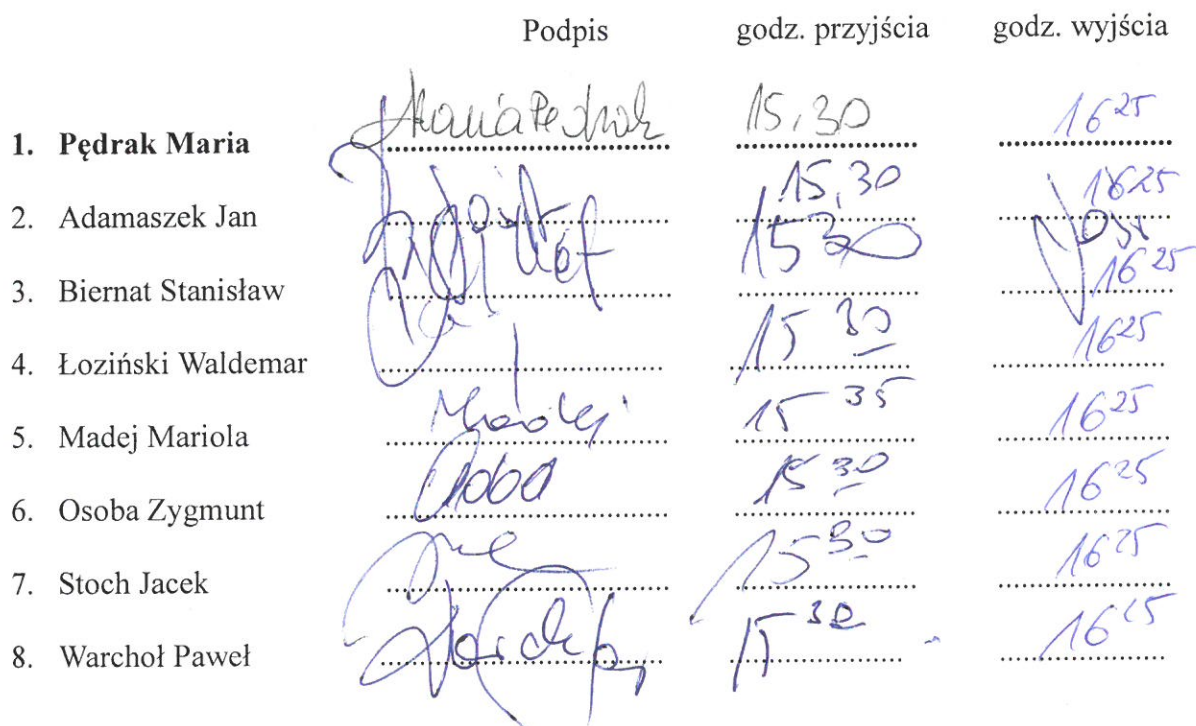 Podpis godz. przyjścia godz. wyjścia
1. Pędrak Maria Maria Pędrak 15,30 16 25
2. Adamaszek Jan 15,30 16 25
3. Biernat Stanisław 15 30 16 25
4. Łoziński Waldemar 15 30 16 25
5. Madej Mariola Madej 15 35 16 25
6. Osoba Zygmunt Osoba 15 30 16 25
7. Stoch Jacek 15 30 16 25
8. Warchoł Paweł 15 30 16 25